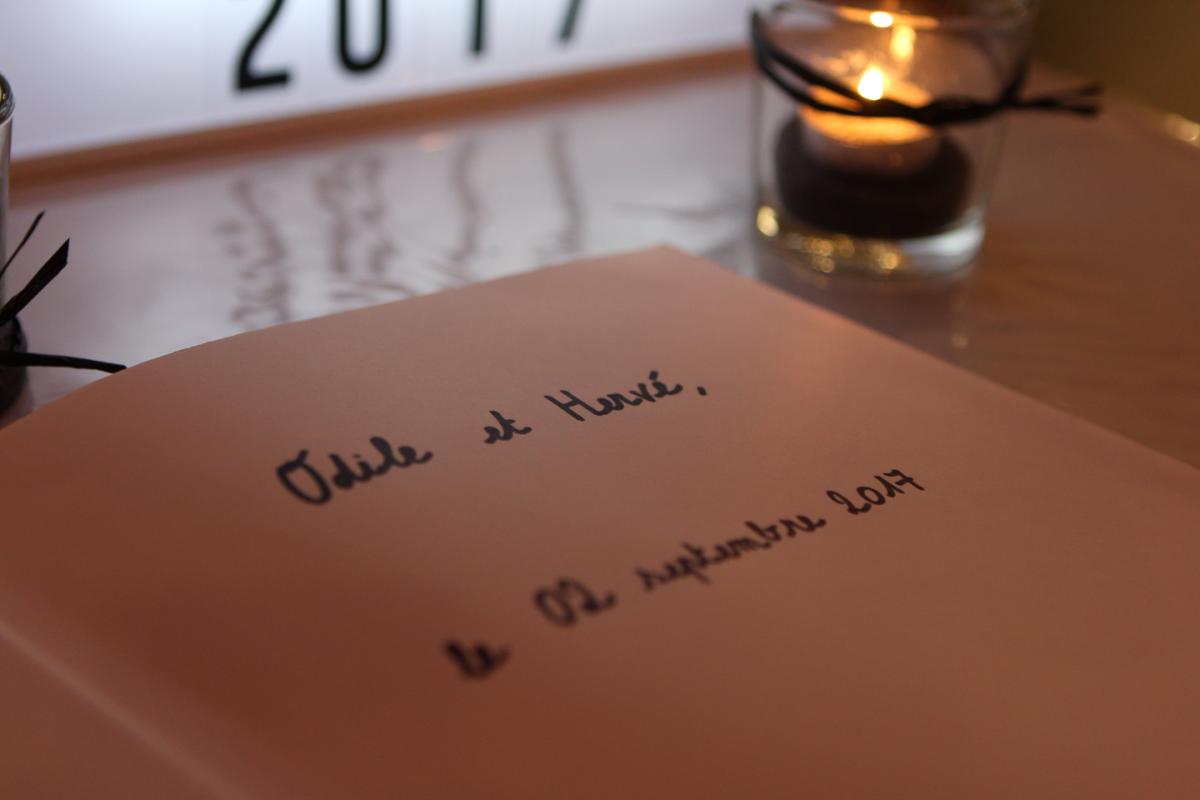 2017
Odile et Hervé,
le 02 septembre 2017